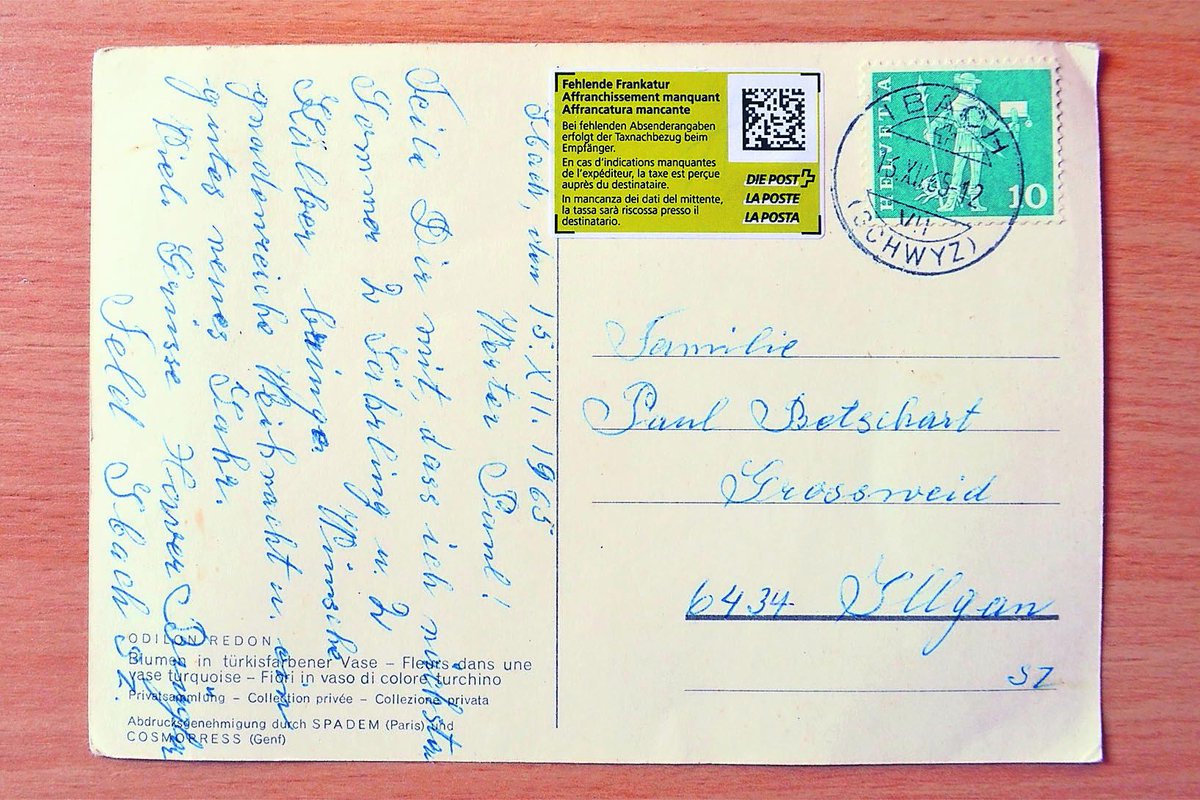 Ibach, den 15. XII. 1965
Werter Paul!
Teile Dir mit, dass ich nächsten
Sommer 2 Jährling u. 2
Kälber bringe. Wünsche
gnadenreiche Weihnacht u. ein
gutes neues Jahr.
Viele Grüsse
Feld Ibach SZ.
ODILON REDON
Blumen in türkisfarbener Vase – Fleurs dans une
vase turquoise – Fiori in vaso di colore turchino
Privatsammlung – Collection privée – Collezione privata
Abdrucksgenehmigung durch SPADEM (Paris) und
COSMOPRESS (Genf)
Fehlende Frankatur
Affranchissement manquant
Affrancatura mancante
Bei fehlenden Absenderangaben
erfolgt der Taxnachbezug beim
Empfänger.
En cas d'indications manquantes
de l'expéditeur, la taxe est perçue
auprès du destinataire.
In mancanza dei dati del mittente,
la tassa sarà riscossa presso il
destinatario.
DIE POST
LA POSTE
LA POSTA
HELVETIA
10
IBACH
15.XII.65-12
VII
(SCHWYZ)
Familie
Paul Betschart
Grossweid
6434 Illgau
SZ